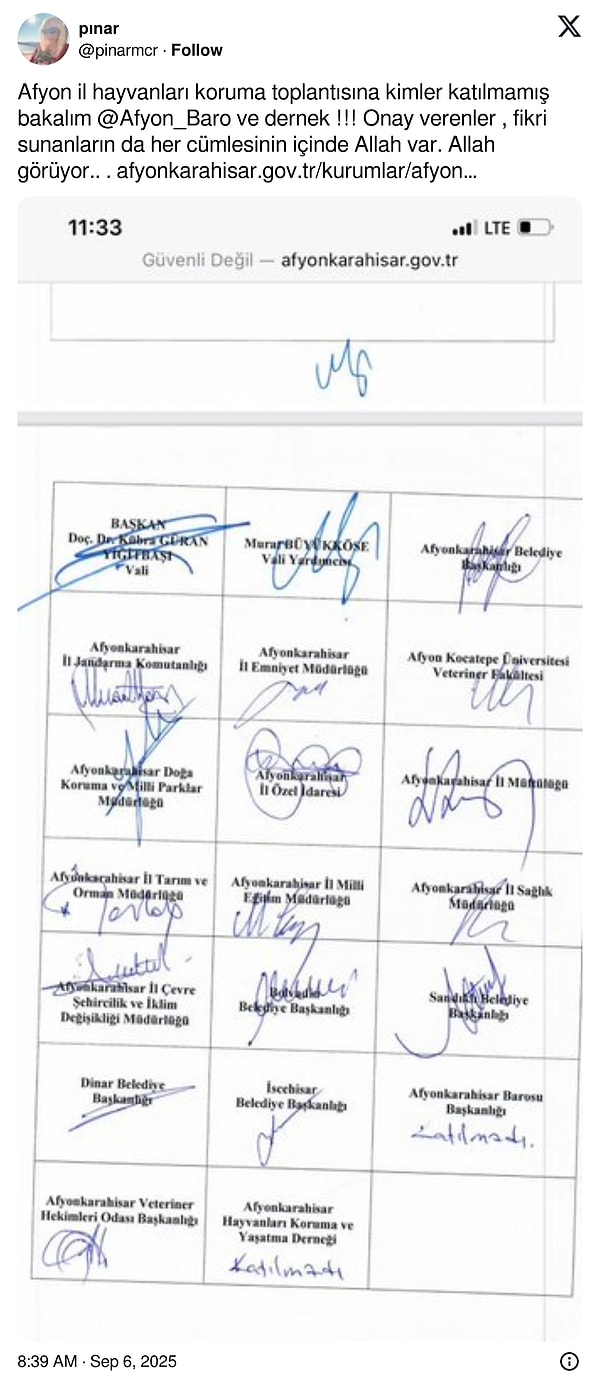 pınar
@pinarmcr · Follow
Afyon il hayvanları koruma toplantısına kimler katılmamış
bakalım @Afyon_Baro ve dernek !!! Onay verenler , fikri
sunanların da her cümlesinin içinde Allah var. Allah
görüyor.. . afyonkarahisar.gov.tr/kurumlar/afyon…
11:33
LTE
Güvenli Değil — afyonkarahisar.gov.tr
BAŞKAN
Doç. Dr. Kübra GÜRAN
YİĞİTBAŞI
Vali
Murat BÜYÜKKÖSE
Vali Yardımcısı
Afyonkarahisar Belediye
Başkanlığı
Afyonkarahisar
İl Jandarma Komutanlığı
Afyonkarahisar
İl Emniyet Müdürlüğü
Afyon Kocatepe Üniversitesi
Veteriner Fakültesi
Afyonkarahisar Doğa
Koruma ve Milli Parklar
Müdürlüğü
Afyonkarahisar
İl Özel İdaresi
Afyonkarahisar İl Müftülüğü
Afyonkarahisar İl Tarım ve
Orman Müdürlüğü
Afyonkarahisar İl Milli
Eğitim Müdürlüğü
Afyonkarahisar İl Sağlık
Müdürlüğü
Afyonkarahisar İl Çevre
Şehircilik ve İklim
Değişikliği Müdürlüğü
Bolvadin
Belediye Başkanlığı
Sandıklı Belediye
Başkanlığı
Dinar Belediye
Başkanlığı
İscehisar
Belediye Başkanlığı
Afyonkarahisar Barosu
Başkanlığı
Katılmadı.
Afyonkarahisar Veteriner
Hekimleri Odası Başkanlığı
Afyonkarahisar
Hayvanları Koruma ve
Yaşatma Derneği
Katılmadı
8:39 AM · Sep 6, 2025